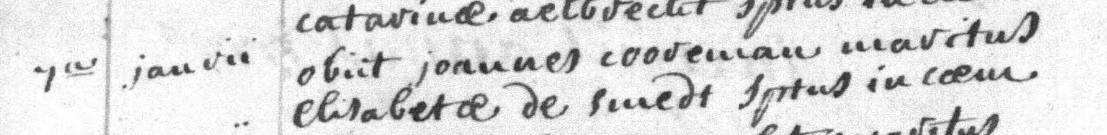 catarinæ aelbrecht sptus in
7ma janrii obiit joannes cooreman maritus
elisabetæ de smedt sptus in cœm
maritus